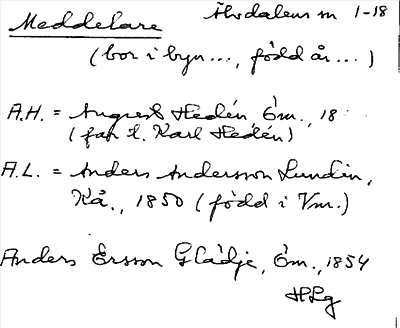 Meddelare Älvdalens sn 1-18
(bor i byn ..., född år ...)
A.H. = August Hedén, Öm., 18
(far t. Karl Hedén)
A.L. = Anders Andersson Lundin,
Kå., 1850 (född i Vm.)
Anders Ersson Glädje, Öm., 1854
HLg